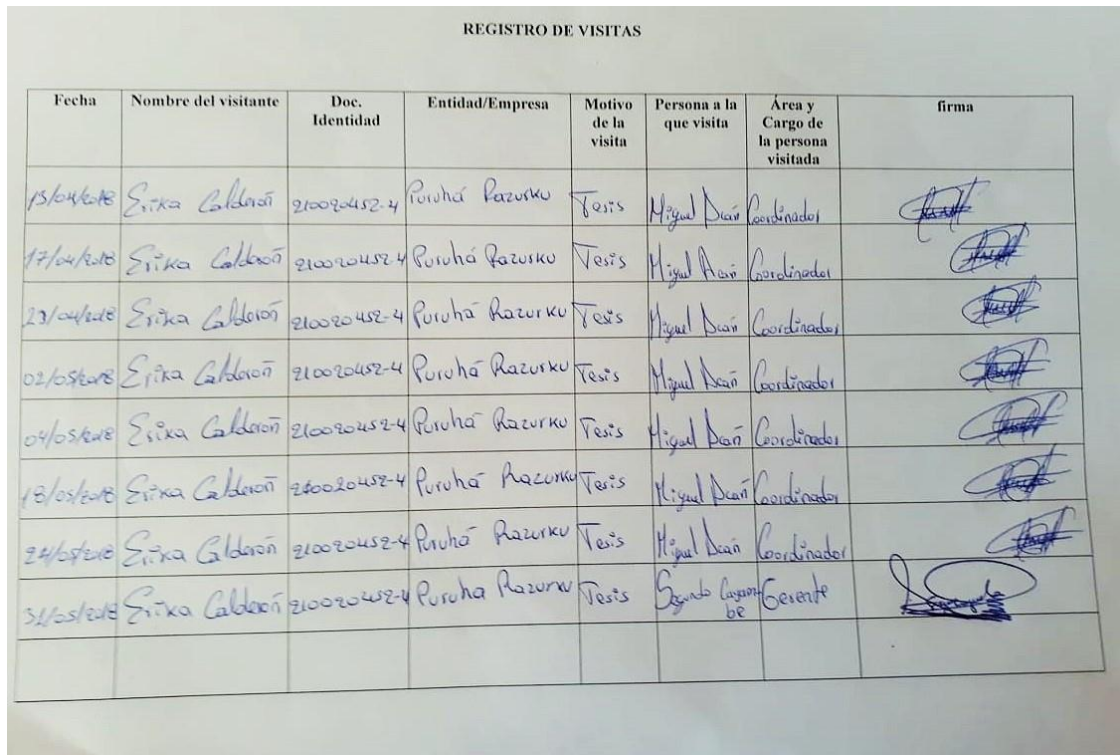 REGISTRO DE VISITAS
Fecha Nombre del visitante Doc. Identidad Entidad/Empresa Motivo de la visita Persona a la que visita Área y Cargo de la persona visitada firma
13/04/2018 Erika Calderoñ 210020452-4 Puruhá Razurku Tesis Miguel Coordinador
17/04/2018 Erika Calderoñ 210020452-4 Puruhá Razurku Tesis Miguel Coordinador
23/04/2018 Erika Calderoñ 210020452-4 Puruhá Razurku Tesis Miguel Coordinador
02/05/2018 Erika Calderoñ 210020452-4 Puruhá Razurku Tesis Miguel Coordinador
04/05/2018 Erika Calderoñ 210020452-4 Puruhá Razurku Tesis Miguel Coordinador
18/05/2018 Erika Calderoñ 210020452-4 Puruhá Razurku Tesis Miguel Coordinador
24/05/2018 Erika Calderoñ 210020452-4 Puruhá Razurku Tesis Miguel Coordinador
31/05/2018 Erika Calderoñ 210020452-4 Puruha Razurku Tesis Segundo Cayambe Gerente